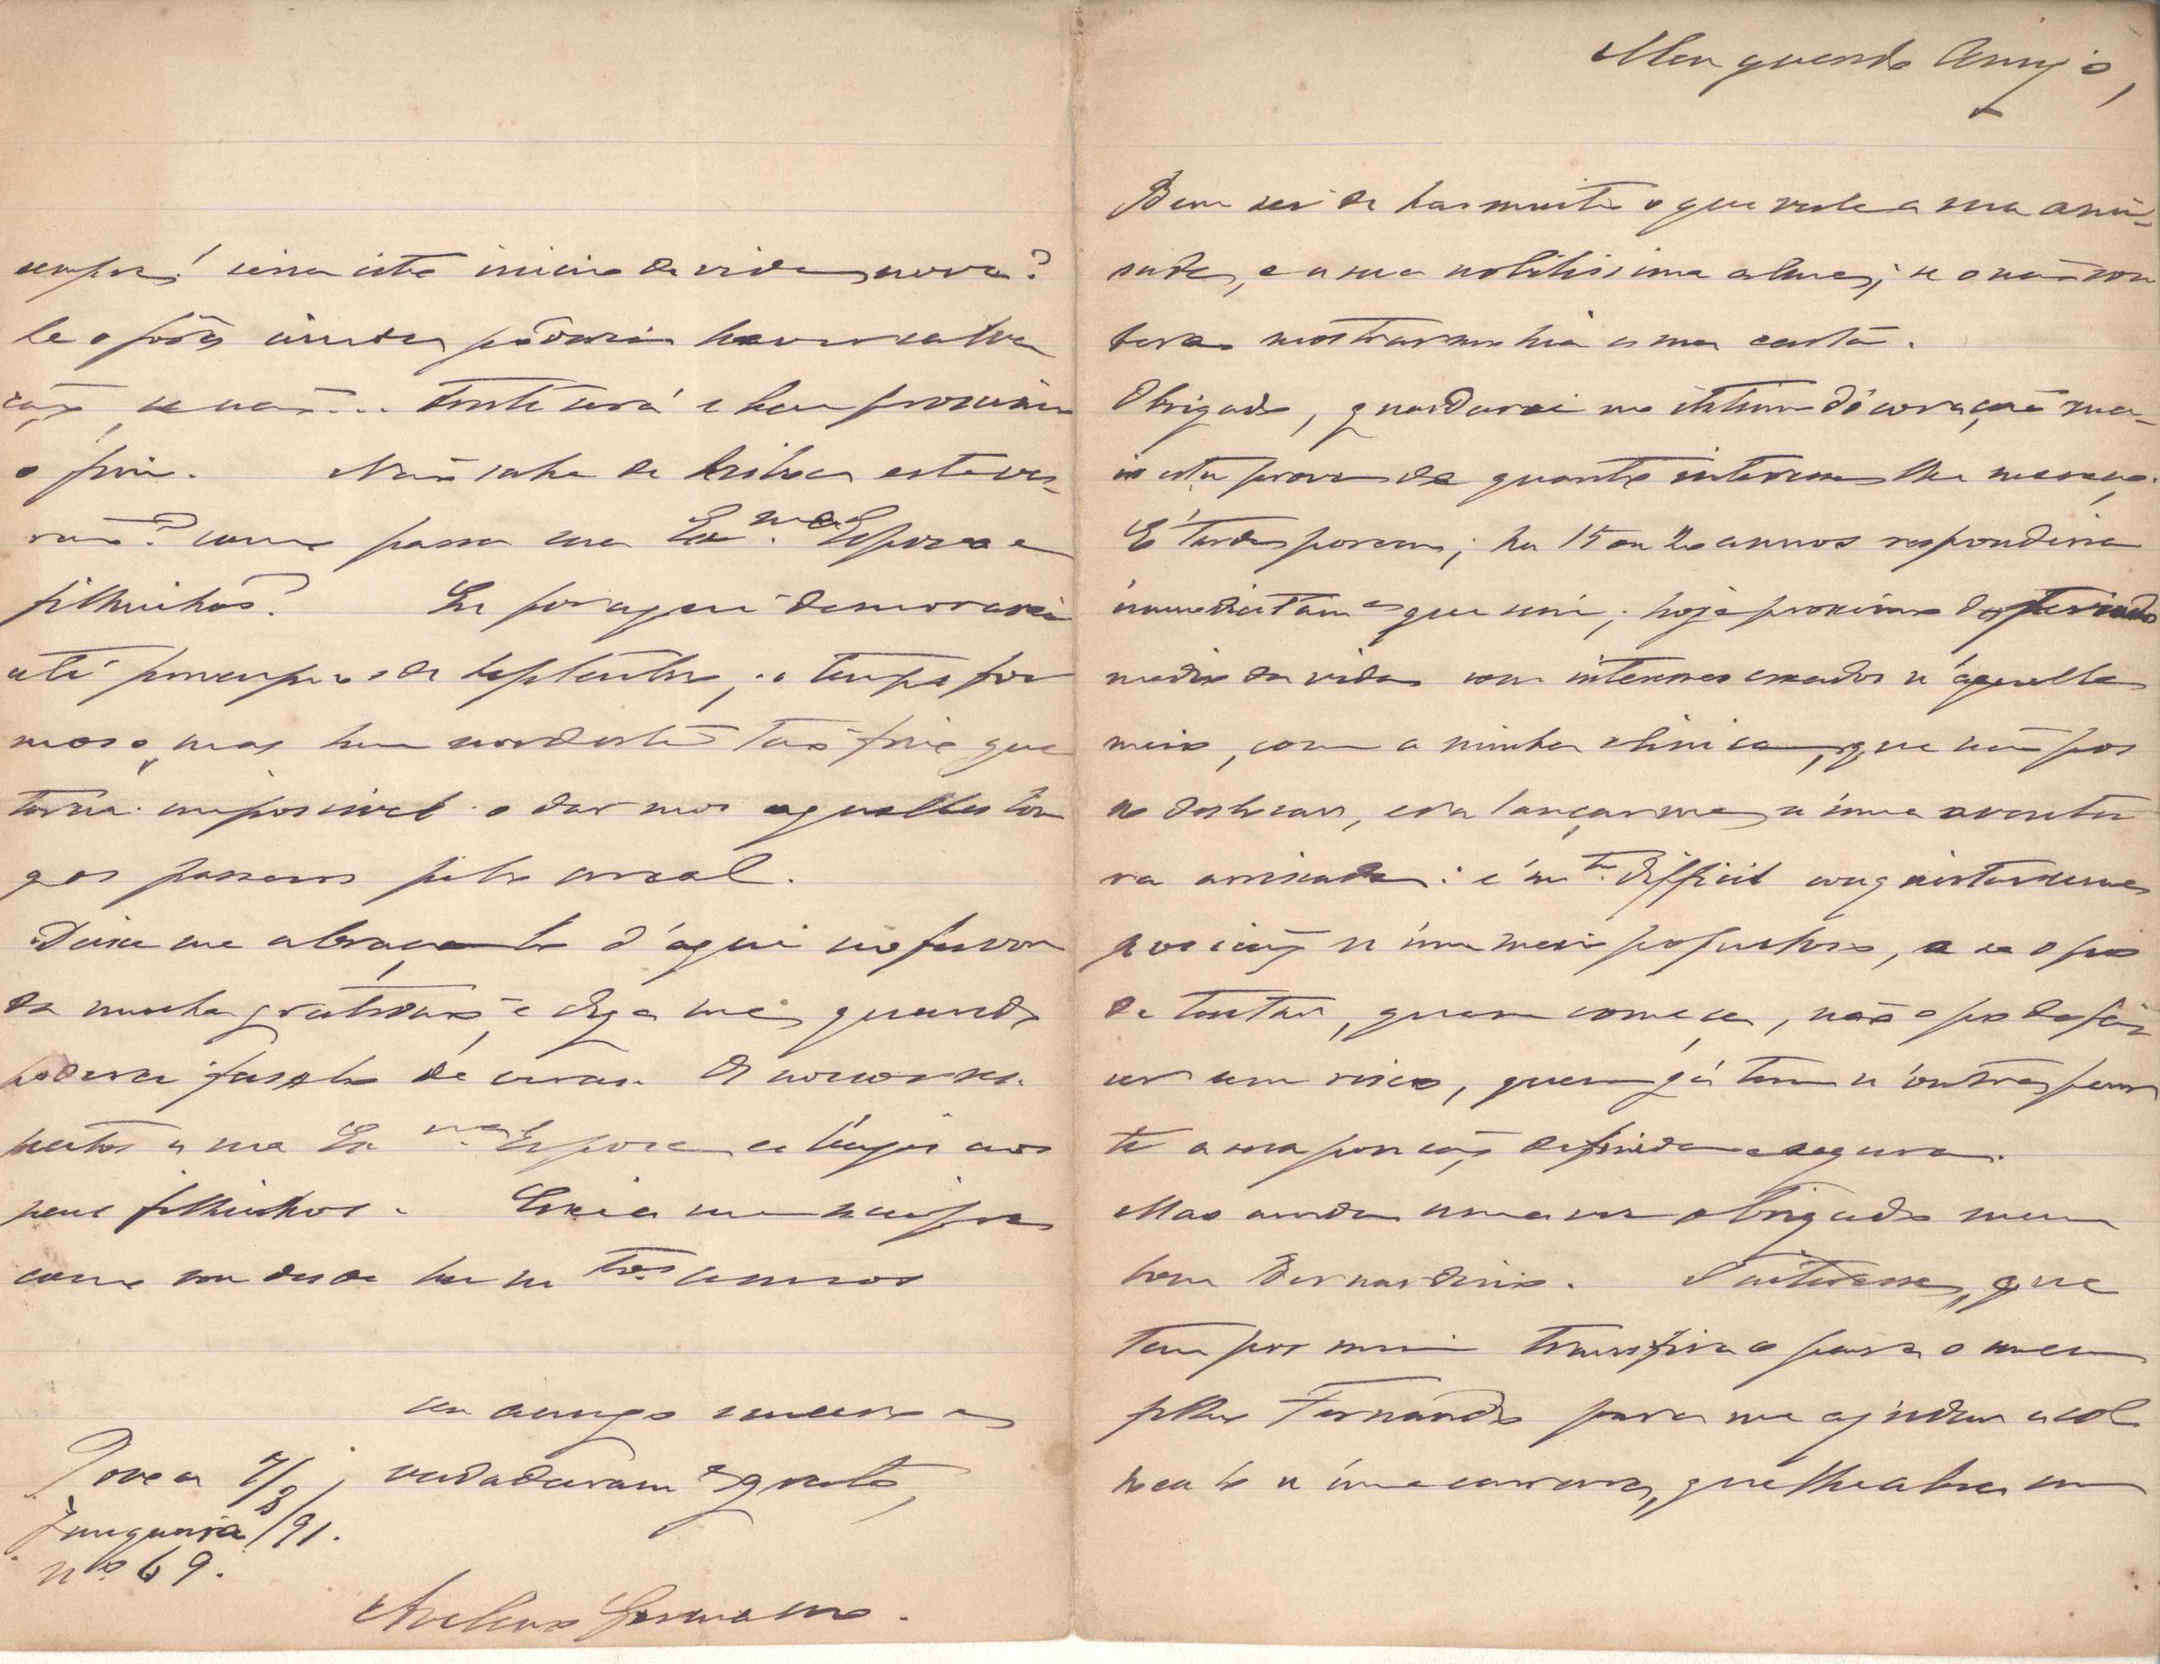 Meu querido Amigo,
Bem sei de ha muito o que vale a sua ami-
sade, e a sua nobilissima alma; se o não sou
bera mostrarmo hia a sua carta.
Obrigado, guardarei no intimo do coração ma-
is esta prova de quanto interesse lhe mereço.
É tarde porem; ha 15 ou 20 annos responderia
immediatam.e que sim; hoje proximo do periodo
medio da vida com interesses creados n'aquelle
meio, com a minha clinica, que não pos
so deslocar, era lançar-me n'uma aventu
ra arriscada: é m.to difficil conquistar uma
posição n'um meio
de tentar, quem começa, não o pode fa
zer sem risco, quem já tem n'outra par
te a sua posição definida e segura.
Mas ainda uma vez obrigado meu
bom Bernardino. O interesse, que
tem por mim transfira o para o meu
filho Fernando para me ajudar a col
local-o n'uma carreira, que lhe abra um
este inicio de vida nova?
ainda poderá haver salva
ção, se não... triste será e bem proximo
o fim. Não sabe de Lisboa estive-
rão? como passa sua Ex.ma Esposa e
filhinhos? Eu por aqui demorarei
até principios de septembro; o tempo for
moso, mas um nordeste tão frio que
torna impossivel o dar mos aquelles lon
gos passeios pelo areal.
Deixe me abraçal-o d'aqui no fervor
da minha gratidão, e diga me quando
poderei fazel-o de viva voz.
peitos a sua Ex.ma Esposa e beijos aos
seus filhinhos. Creia me sempre
como sou desde ha m.tos annos
seu amigo sincero e
verdadeiram.e grato,
Povoa 7/8/91.
Junqueira
nº 69.
Avelino Germano.